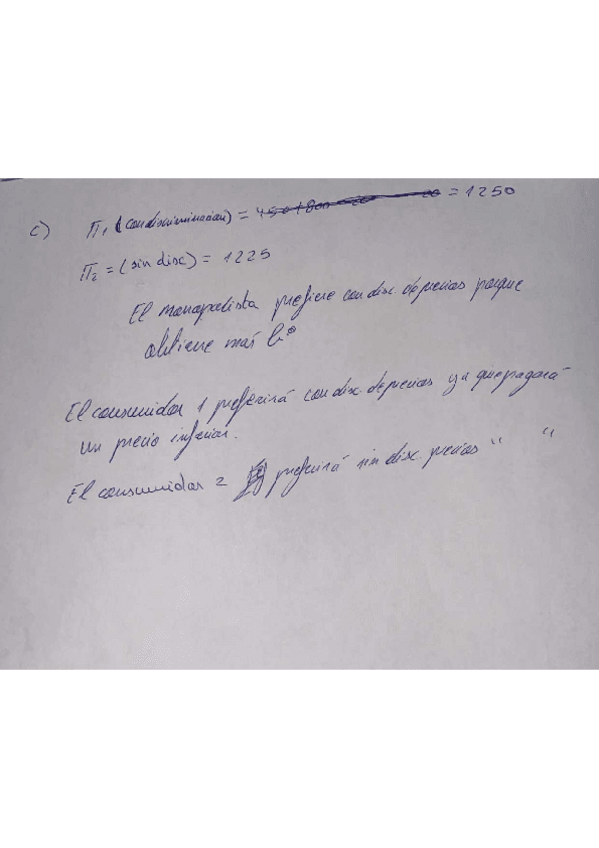 c) Π₁ (con discriminacion) = = 1250
Π₂ = (sin disc) = 1225
El monopolista prefiere con disc. de precios porque
obtiene más bº
El consumidor 1 preferirá con disc. de precios ya que pagará
un precio inferior.
El consumidor 2 preferirá sin disc. precios " "